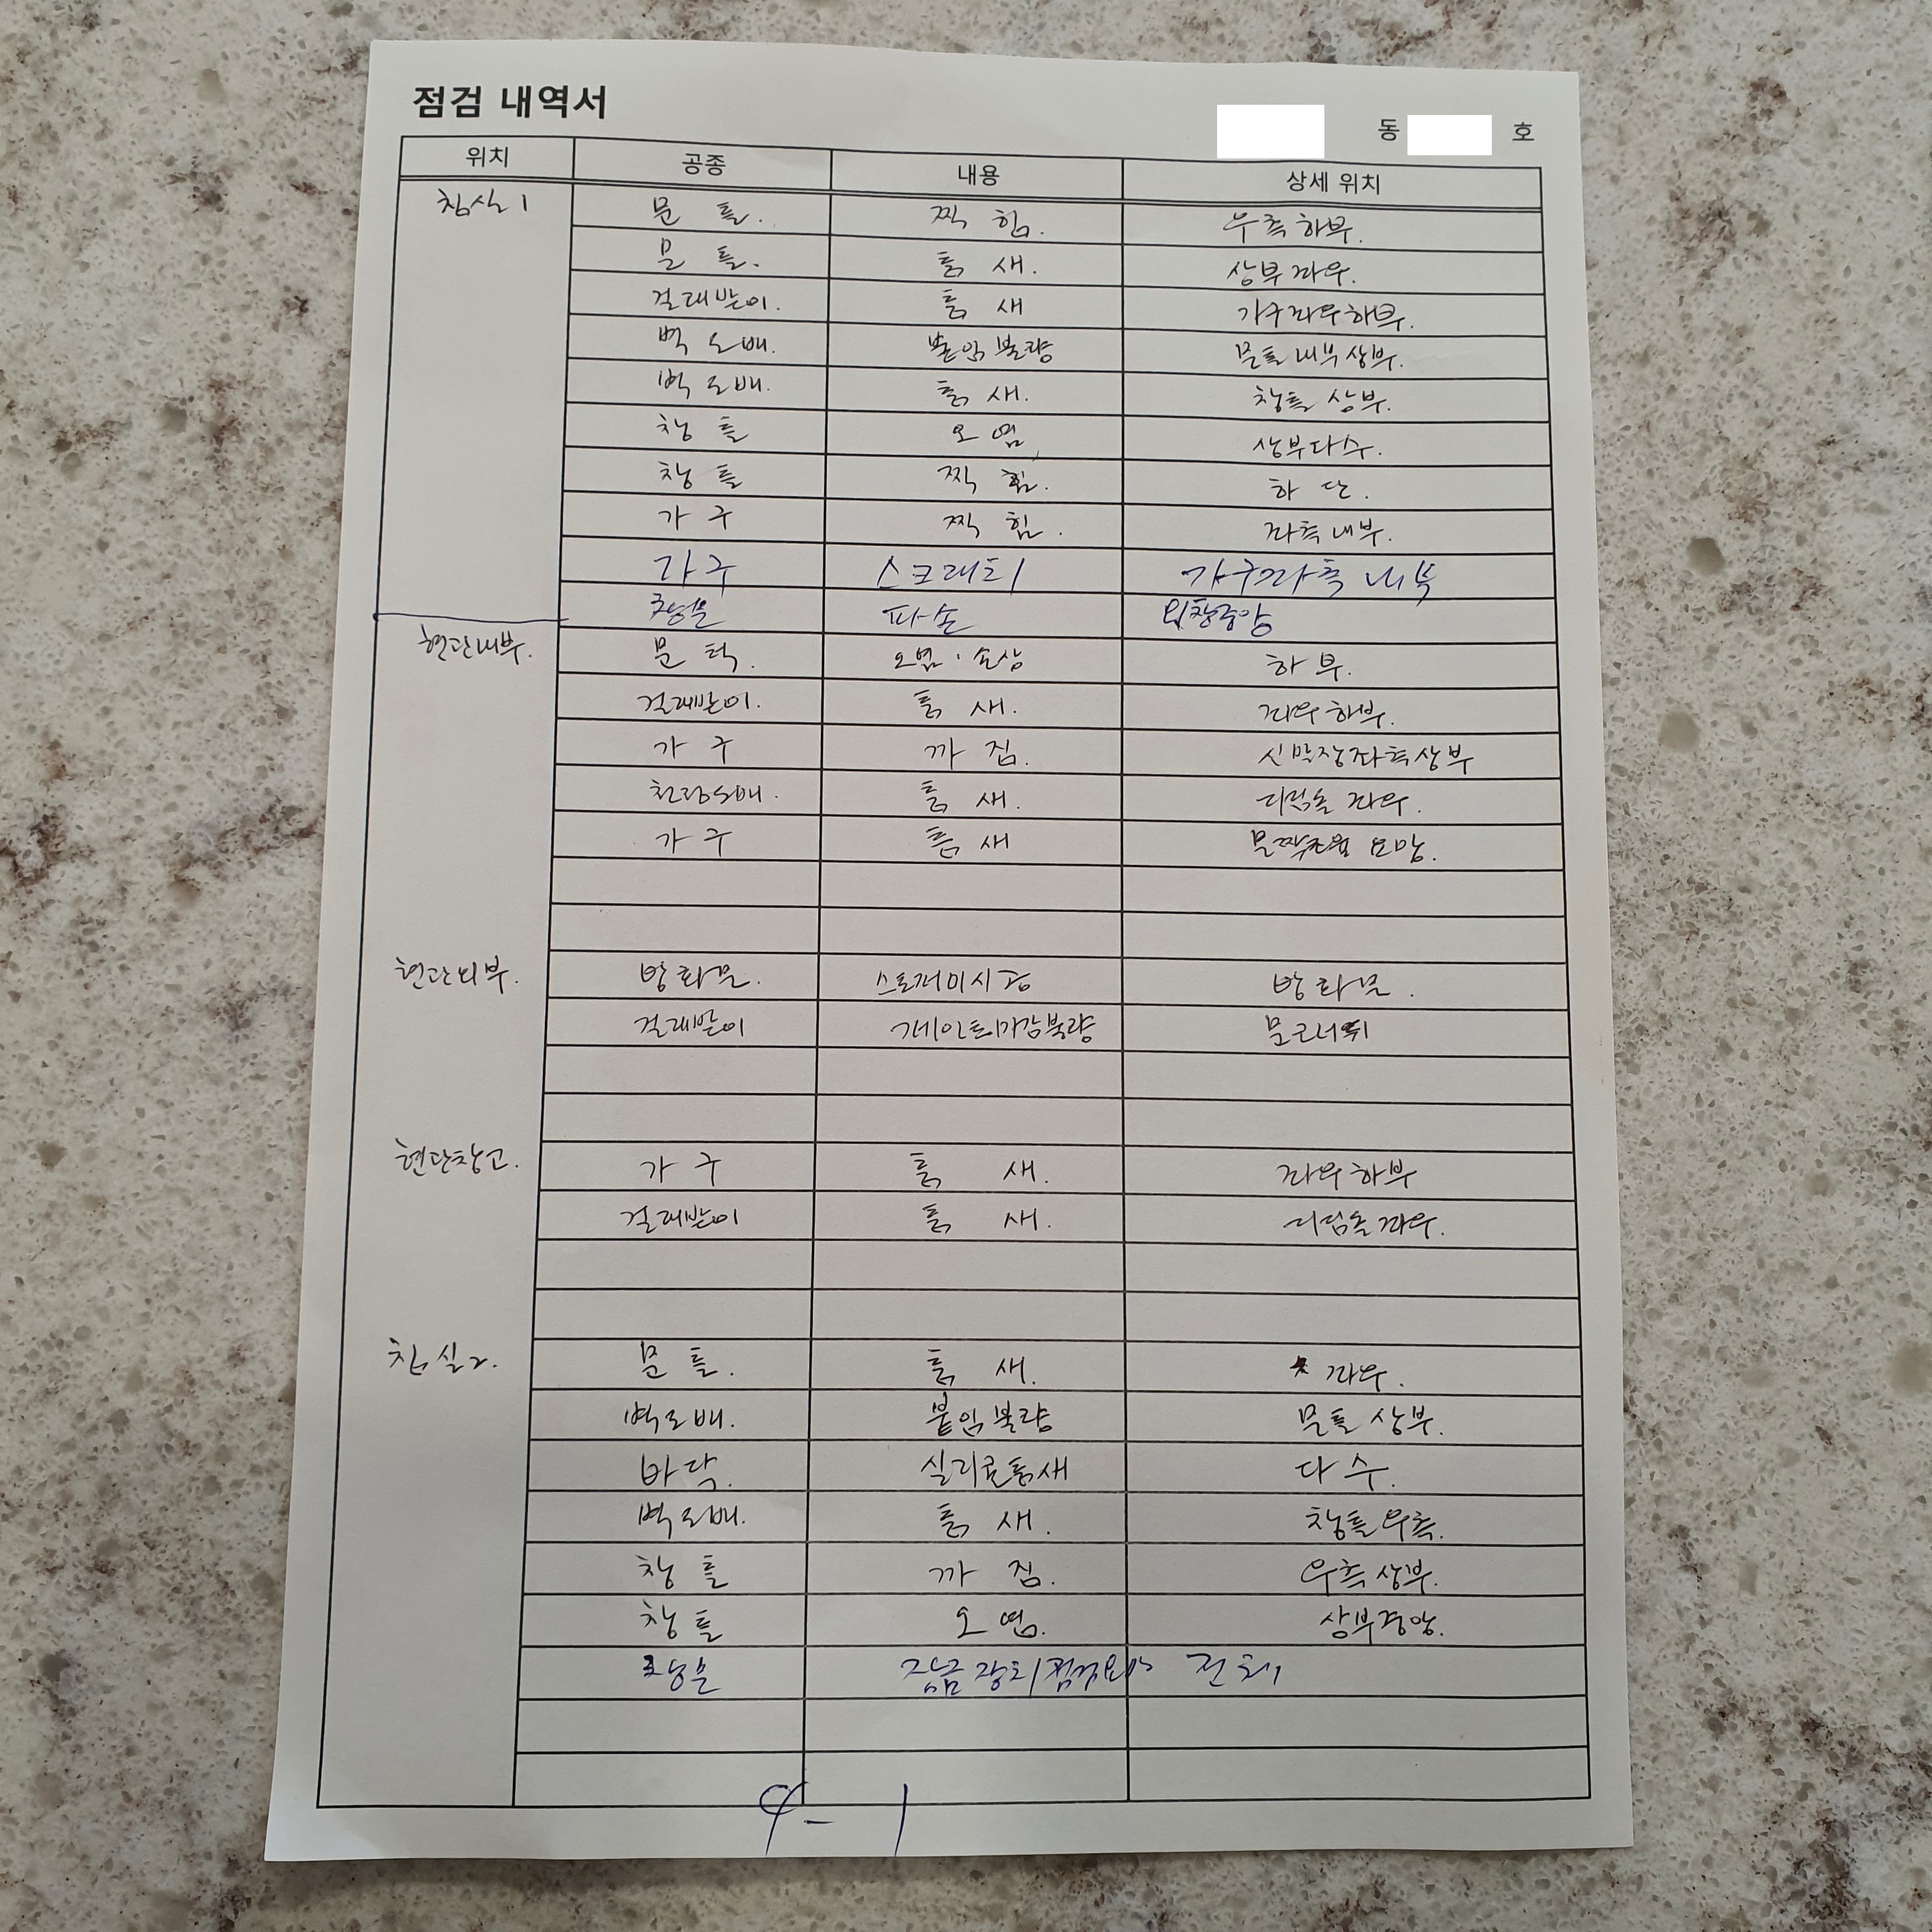 점검 내역서
동 호
위치 공종 내용 상세 위치
침실1 문틀. 찍힘. 우측하부.
문틀. 틈새. 상부좌우.
걸레받이. 틈새 가구좌우하부.
벽도배. 붙임불량 문틀내부상부.
벽도배. 틈새. 창틀상부.
창틀 오염 상부다수.
창틀 찍힘. 하단.
가구 찍힘. 좌측내부.
가구 스크래치 가구좌측 내부
창문 파손 외창중앙
현관내부. 문턱. 오염·손상 하부.
걸레받이. 틈새. 좌우하부.
가구 까짐. 신발장좌측상부
천정도배. 틈새. 디딤돌 좌우.
가구 틈새 문짝조절 요망.
현관외부. 방화문. 스토퍼미시공 방화문.
걸레받이 페인트마감불량 문코너쉬
현관창고. 가구 틈새. 좌우하부
걸레받이 틈새. 디딤돌좌우.
침실2. 문틀. 틈새. 좌우.
벽도배. 붙임불량 문틀상부.
바닥. 실리콘틈새 다수.
벽도배. 틈새. 창틀우측.
창틀 까짐. 우측상부.
창틀 오염. 상부중앙.
창문 잠금장치점검요망 전체
4-1